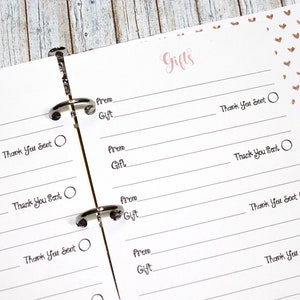 Thank You Sent
Thank You Sent
Thank You Sent
Gifts
From
Gift Thank You Sent
From
Gift Thank You Sent
From
Gift Thank You Sent
From
Gift Thank You Sent